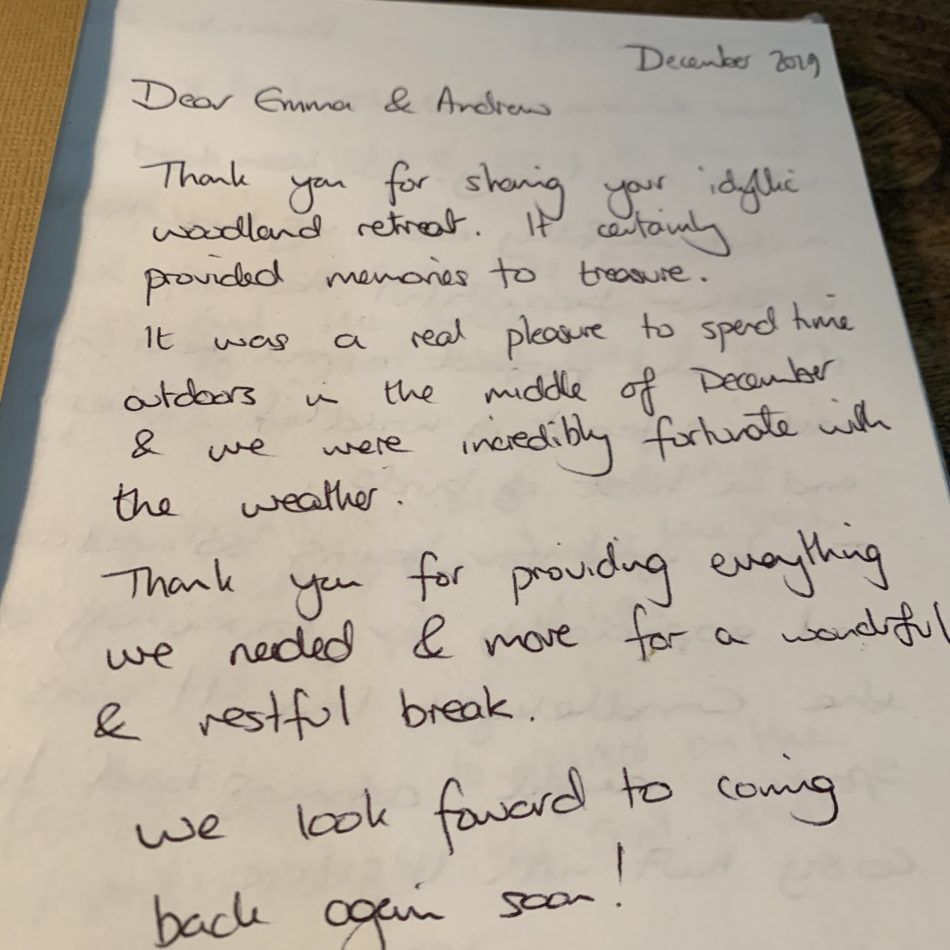 December 2019
Dear Emma & Andrew
Thank you for sharing your idyllic
woodland retreat. It certainly
provided memories to treasure.
It was a real pleasure to spend time
outdoors in the middle of December
& we were incredibly fortunate with
the weather.
Thank you for providing everything
we needed & more for a wonderful
& restful break.
We look foward to coming
back again soon!